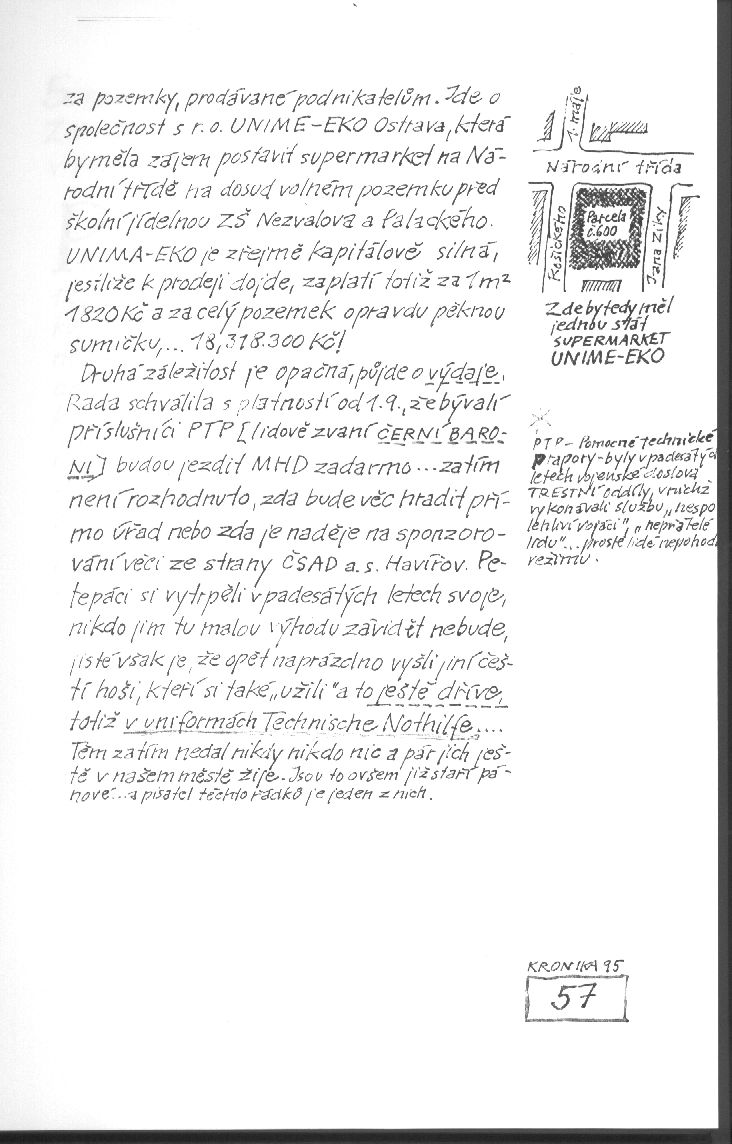 za pozemky, prodávané podnikatelům. Jde o
společnost s r.o. UNIME-EKO Ostrava, která
by měla zájem postavit supermarket na Ná-
rodní třídě na dosud volném pozemku před
školní jídelnou ZŠ Nezvalova a Palackého.
UNIMA-EKO je zřejmě kapitálově silná,
jestliže k prodeji dojde, zaplatí totiž za 1m²
1820 Kč a za celý pozemek opravdu pěknou
sumičku,... 18,318.300 Kč!
Druhá záležitost je opačná, půjde o výdaje.
Rada schválila s platností od 1.9., že bývalí
příslušníci PTP [lidově zvaní ČERNÍ BARO-
NI] budou jezdit MHD zadarmo...zatím
není rozhodnuto, zda bude věc hradit pří-
mo úřad nebo zda je naděje na sponzoro-
vání věci ze strany ČSAD a.s. Havířov. Pe-
tepáci si vytrpěli v padesátých letech svoje,
nikdo jim tu malou výhodu závidět nebude,
jisté však je, že opět naprázdno vyšli jiní češ-
tí hoši, kteří si také „užili" a to ještě dříve,
totiž v uniformách Technische Nothilfe....
Těm zatím nedal nikdy nikdo nic a pár jich ješ-
tě v našem městě žije. Jsou to ovšem již staří pá-
nové...a pisatel těchto řádků je jeden z nich.
1. máje
Národní třída
Košického
Parcela
č.600
Jana Ziky
Zde by tedy měl
jednou stát
SUPERMARKET
UNIME-EKO
PTP - Pomocné technické
prapory - byly v padesátých
letech vojenské doslova
TRESTNÍ oddíly, v nichž
vykonávali službu „nespo
lehliví vojáci", „nepřátelé
lidu"... prostě lidé nepohod
režimu.
KRONIKA 95
57